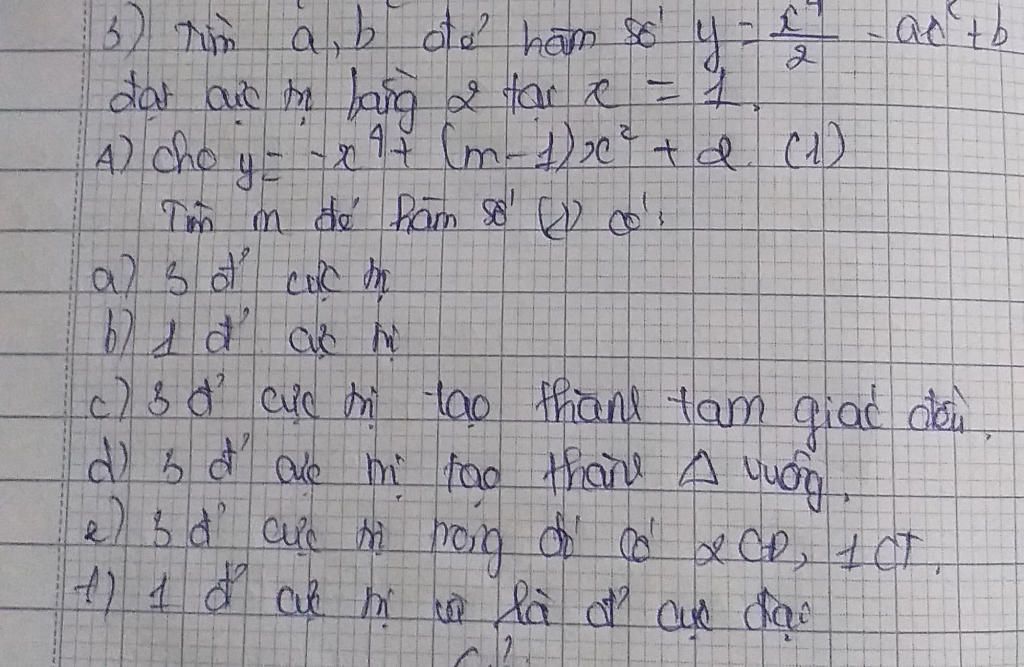 3) Tìm a, b để hàm số y = x⁴/2 - ax² + b
đạt cực trị bằng 2 tại x = 1.
4) Cho y = -x⁴ + (m-1)x² + 2 (1)
Tìm m để hàm số (1) có:
a) 3 đ' cực trị
b) 1 đ' cực trị
c) 3 đ' cực trị tạo thành tam giác đều.
d) 3 đ' cực trị tạo thành Δ vuông.
e) 3 đ' cực trị trong đó có 2 CĐ, 1 CT.
f) 1 đ' cực trị và là đ' cực đại